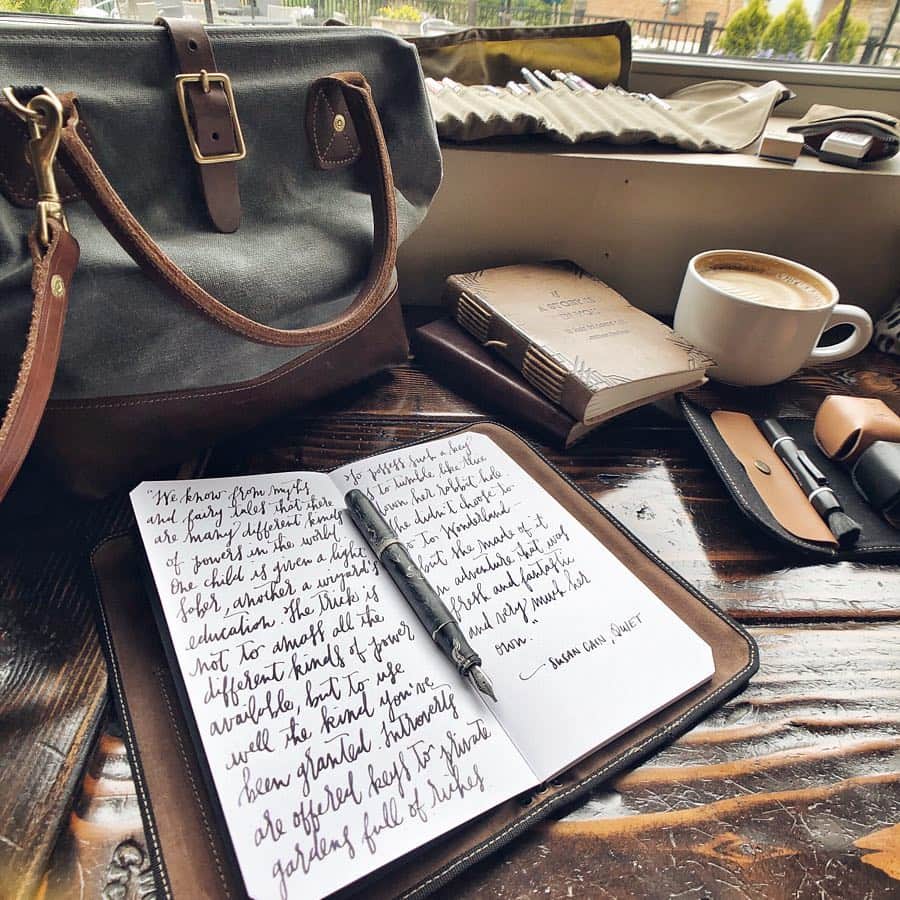 "We know from myths
and fairy tales that there
are many different kinds
of powers in the world.
One child is given a light
saber, another a wizard's
education. The trick is
not to amass all the
different kinds of power
available, but to use
well the kind you've
been granted. Introverts
are offered keys to private
gardens full of riches.
To possess such a key
is to tumble like Alice
down her rabbit hole.
She didn't choose to go
to Wonderland
but she made of it
an adventure that was
fresh and fantastic
and very much her
own."
SUSAN CAIN, QUIET
IF
A STORY IS
IN YOU